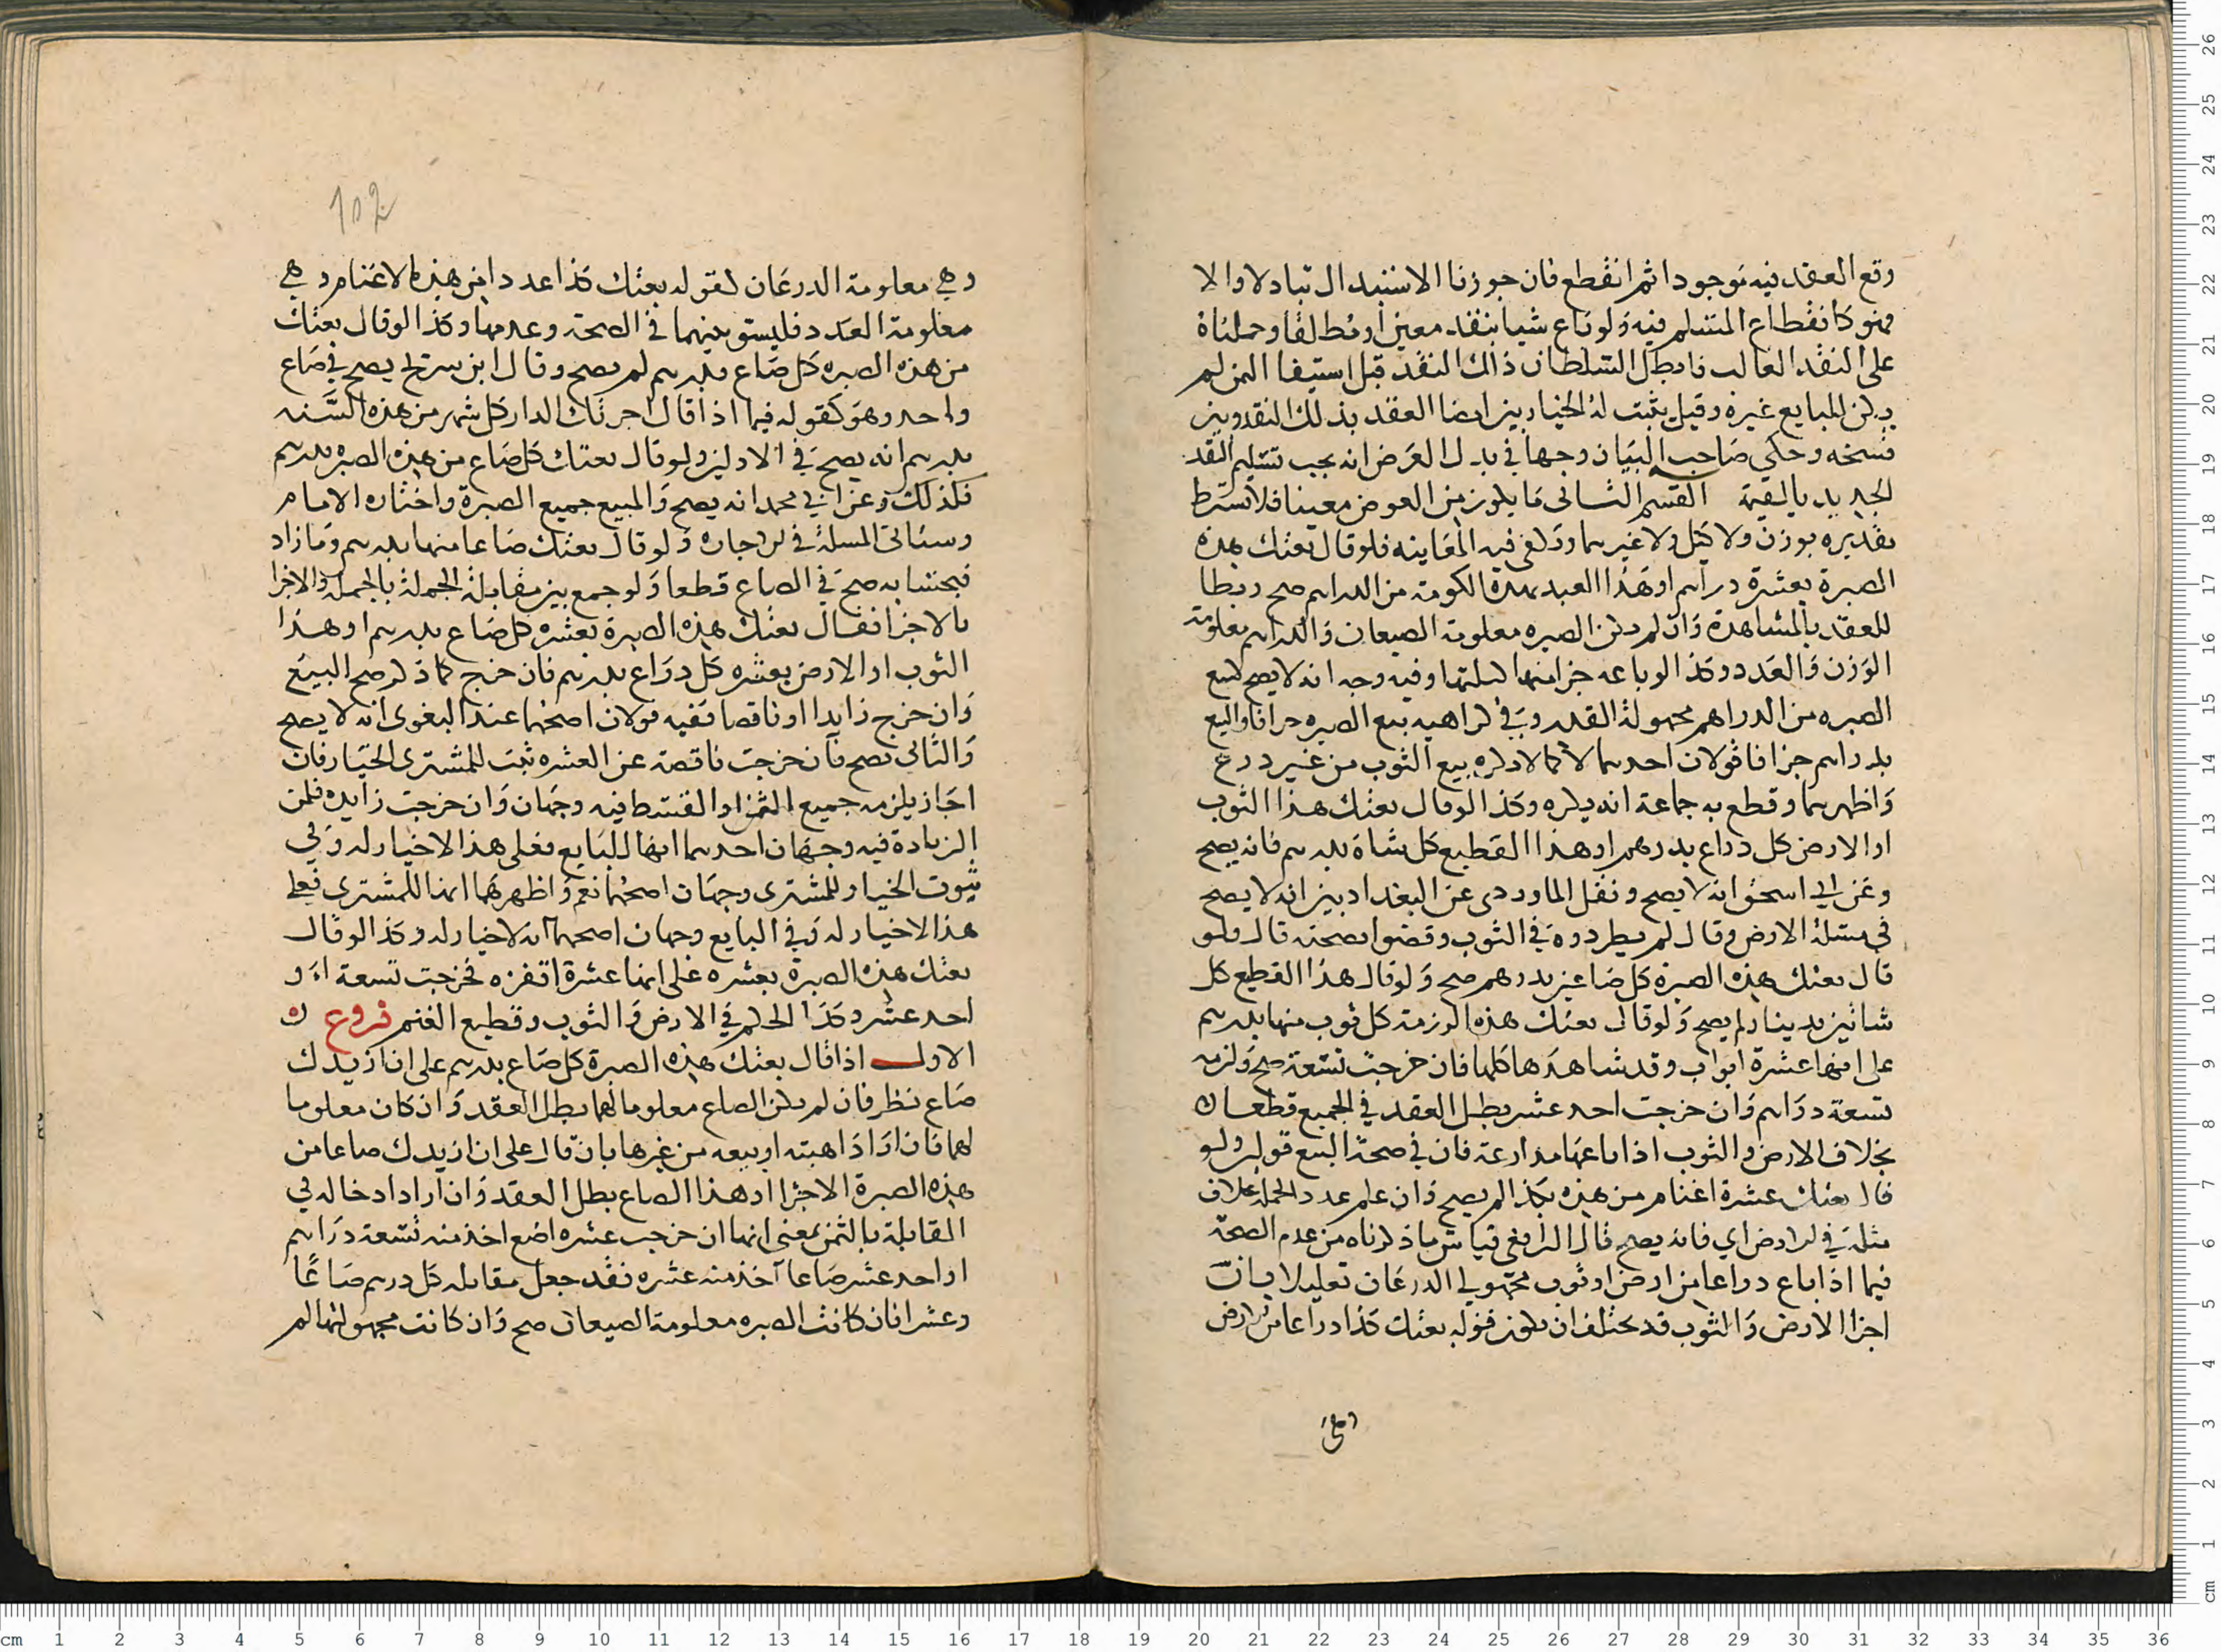 وقع العقد فيه موجودا ثم انقطع فان جوزنا الاستبدال تبادلا والا
فهو كانقطاع المسلم فيه ولو باع شيا بنقد معين او مطلقا وحملناه
على النقد الغالب فابطل السلطان ذلك النقد قبل استيفا الثمن لم
يكن للبايع غيره وقيل يثبت له الخيار بين امضا العقد بذلك النقد وبين
فسخه وحكى صاحب البيان وجها في بدل العرض انه يجب تسليم النقد
الجديد بالقيمة القسم الثانى ما يكون من العوض معينا فلا يشترط
تقديره بوزن ولا كيل ولا غيرهما ويكفى فيه المعاينه فلو قال بعتك هذه
الصبرة بعشرة دراهم او هذا العبد بهذه الكومة من الدراهم صح ربطا
للعقد بالمشاهدة وان لم يكن الصبره معلومة الصيعان والدراهم معلومة
الوزن والعدد وكذا لو باعه جزا منها وفيه وجه انه لا يصح بيع
الصبره من الدراهم مجهولة القدر وفي كراهيه بيع الصبره جزافا والبيع
بدراهم جزافا قولان احدهما لا كما لا يكره بيع الثوب من غير درع
واظهرهما وقطع به جماعة انه يكره وكذا لو قال بعتك هذا الثوب
او الارض كل دراع بدرهم او هذا القطيع كل شاة بدرهم فانه يصح
وعن ابي اسحق انه لا يصح ونقل الماوردى عن البغداديين انه لا يصح
في مسئلة الارض وقال لم يطردوه في الثوب وقضوا بصحته قال ولو
قال بعتك هذه الصبره كل صاعين بدرهم صح ولو قال هذا القطيع كل
شاتين بدينار لم يصح ولو قال بعتك هذه الرزمة كل ثوب منها بدرهم
على انها عشرة اثواب وقد شاهدها كلها فان خرجت تسعة صح ولزمه
تسعة دراهم وان خرجت احد عشر بطل العقد في الجميع قطعا
بخلاف الارض والثوب اذا باعها مدارعة فان في صحة البيع قولين ولو
قال بعتك عشرة اغنام من هذه بكذا لم يصح وان علم عدد الجملة بخلاف
مثله في الارض اي فانه يصح قال الرافعى قياس ما ذكرناه من عدم الصحة
فيما اذا باع دراعا من ارض او ثوب مجهولي الدرعان تعليلا بان
اجزا الارض والثوب قد تختلف ان يكون قوله بعتك كذا دراعا من الارض
وهي
102
وهي معلومة الدرعان كقوله بعتك كذا عددا من هذه الاغنام وهي
معلومة العدد فليستو بينهما في الصحة وعدمها وكذا لو قال بعتك
من هذه الصبره كل صاع بدرهم لم يصح وقال ابن سريج يصح في صاع
واحد وهو كقوله فيما اذا قال اجرتك الدار كل شهر من هذه السنه
بدرهم انه يصح في الاول ولو قال بعتك كل صاع من هذه الصبره بدرهم
فكذلك وعن ابي محمد انه يصح والمبيع جميع الصبرة واختاره الامام
وستاتى المسلة في الاجاره ولو قال بعتك صاعا منها بدرهم وما زاد
فبحسابه صح في الصاع قطعا ولو جمع بين مقابلة الجملة بالجملة والاجزا
بالاجزا فقال بعتك هذه الصبرة بعشره كل صاع بدرهم او هذا
الثوب او الارض بعشره كل دراع بدرهم فان خرج كما ذكر صح البيع
وان خرج زايدا او ناقصا ففيه قولان اصحهما عند البغوى انه لا يصح
والثانى يصح فان خرجت ناقصة عن العشره ثبت للمشترى الخيار فان
اجاز يلزمه جميع الثمن او القسط فيه وجهان وان خرجت زايده فلمن
الزيادة فيه وجهان احدهما انها للبايع فعلى هذا لا خيار له وفي
ثبوت الخيار للمشترى وجهان اصحهما نعم واظهرهما انها للمشترى فعلى
هذا لا خيار له وفي البايع وجهان اصحهما انه لا خيار له وكذا لو قال
بعتك هذه الصبرة بعشره على انها عشرة اقفزه فخرجت تسعة او
احد عشر وكذا الحكم في الارض والثوب وقطيع الغنم فروع
الاول اذا قال بعتك هذه الصبرة كل صاع بدرهم على ان ازيدك
صاع نظر فان لم يكن الصاع معلوما لهما بطل العقد وان كان معلوما
لهما فان اراد هبته او بيعه من غيرها بان قال على ان ازيدك صاعا من
هذه الصبرة الاخرا او هذا الصاع بطل العقد وان اراد ادخاله في
المقابلة بالثمن بمعنى انها ان خرجت عشره اصع اخذ منه تسعة دراهم
او احد عشر صاعا آخذ منه عشره فقد جعل مقابله كل درهم صاعا
وعشرا فان كانت الصبره معلومة الصيعان صح وان كانت مجهولتها لم